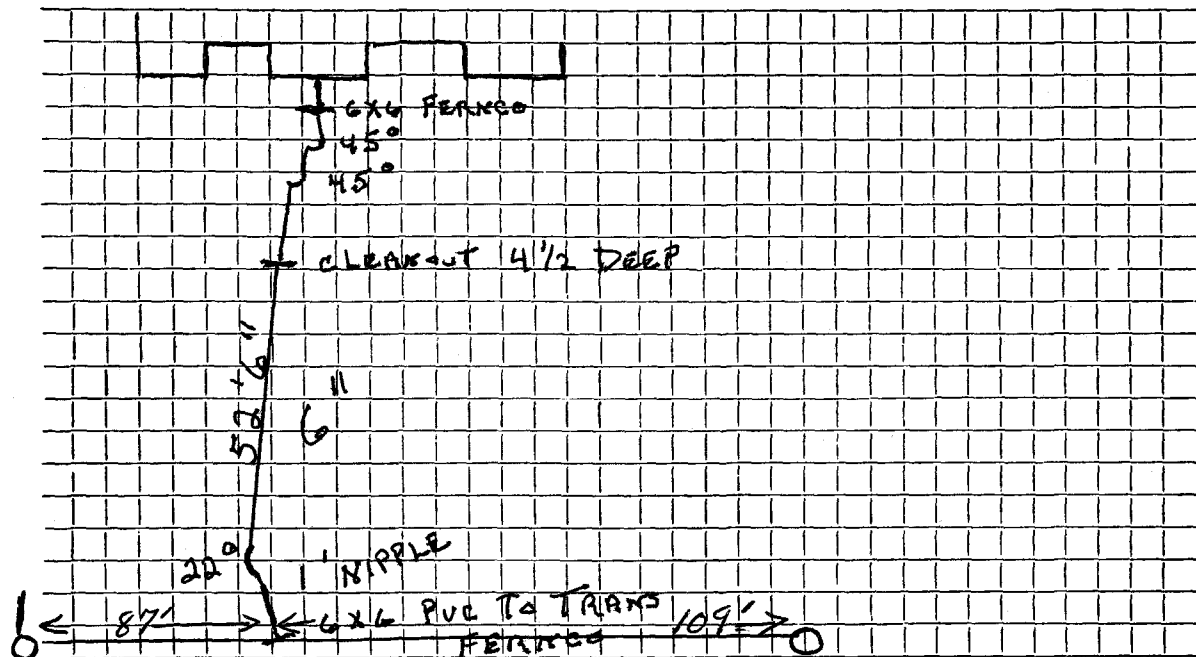 6X6 FERNCO
45°
45°
CLEANOUT 4 1/2 DEEP
52'6"
6"
22°
1' NIPPLE
87'
6X6 PVC TO TRANS
FERNCO
109'